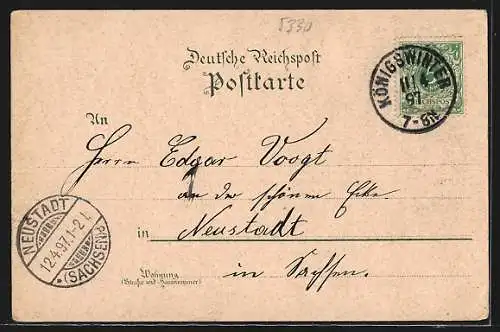 5330
Deutsche Reichspost
Postkarte
KÖNIGSWINTER
11 4
97
7-8N
An
Herrn Edgar Voogt
1
an der schönen Ecke.
in Neustadt
in Sachsen.
Wohnung
(Straße und Hausnummer)
NEUSTADT
12.4.97.1-2 N.
* (SACHSEN) *